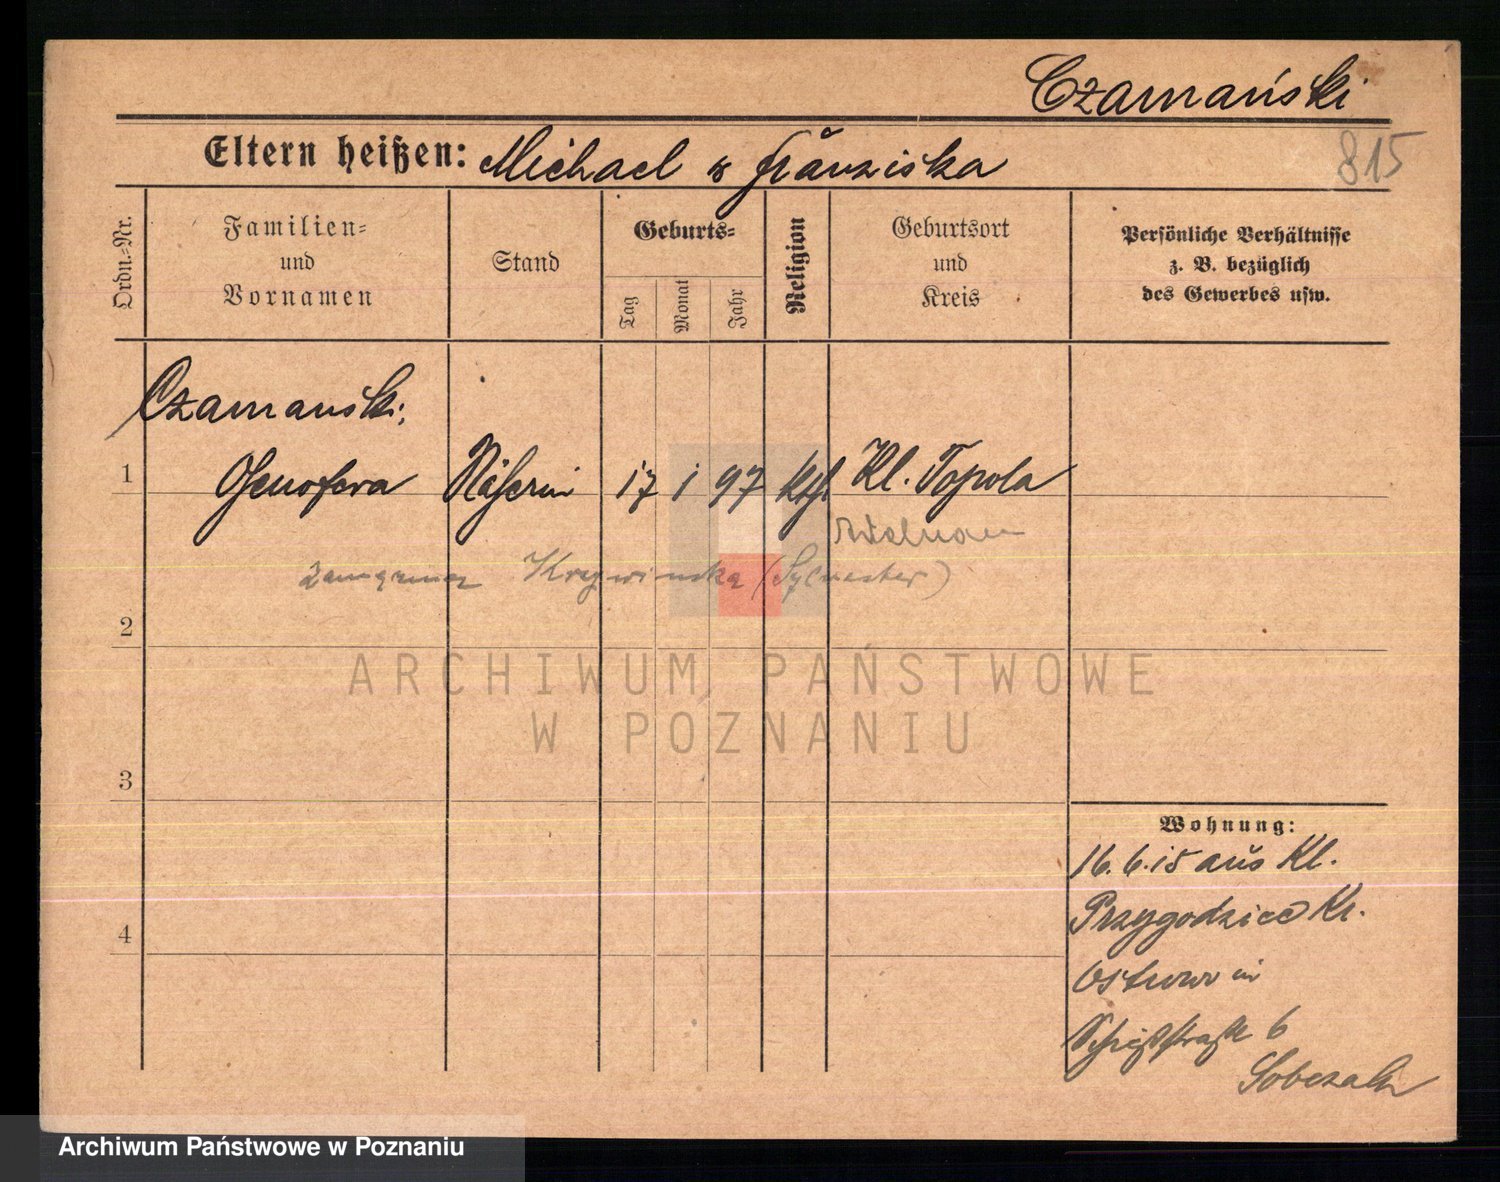 Czamański
Eltern heißen: Michael u Franziska
815
Ordn.-Nr.
Familien-
und
Vornamen
Stand
Geburts-
Tag
Monat
Jahr
Religion
Geburtsort
und
Kreis
Persönliche Verhältnisse
z. B. bezüglich
des Gewerbes usw.
Czamanski,
1 Genofeva Näherin 17 1 97 kath Kl. Topola
Adelnau
Krzywinska (Sylvester)
2
3
4
Wohnung:
16.6.15 aus Kl.
Przygodzice Kr.
Ostrowo in
6
Sobczak
ARCHIWUM PAŃSTWOWE
W POZNANIU
Archiwum Państwowe w Poznaniu